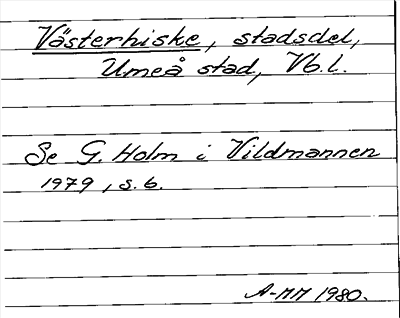 Västerhiske, stadsdel,
Umeå stad, Vb.l.
Se G. Holm i Vildmannen
1979, s. 6.
A-MM 1980.